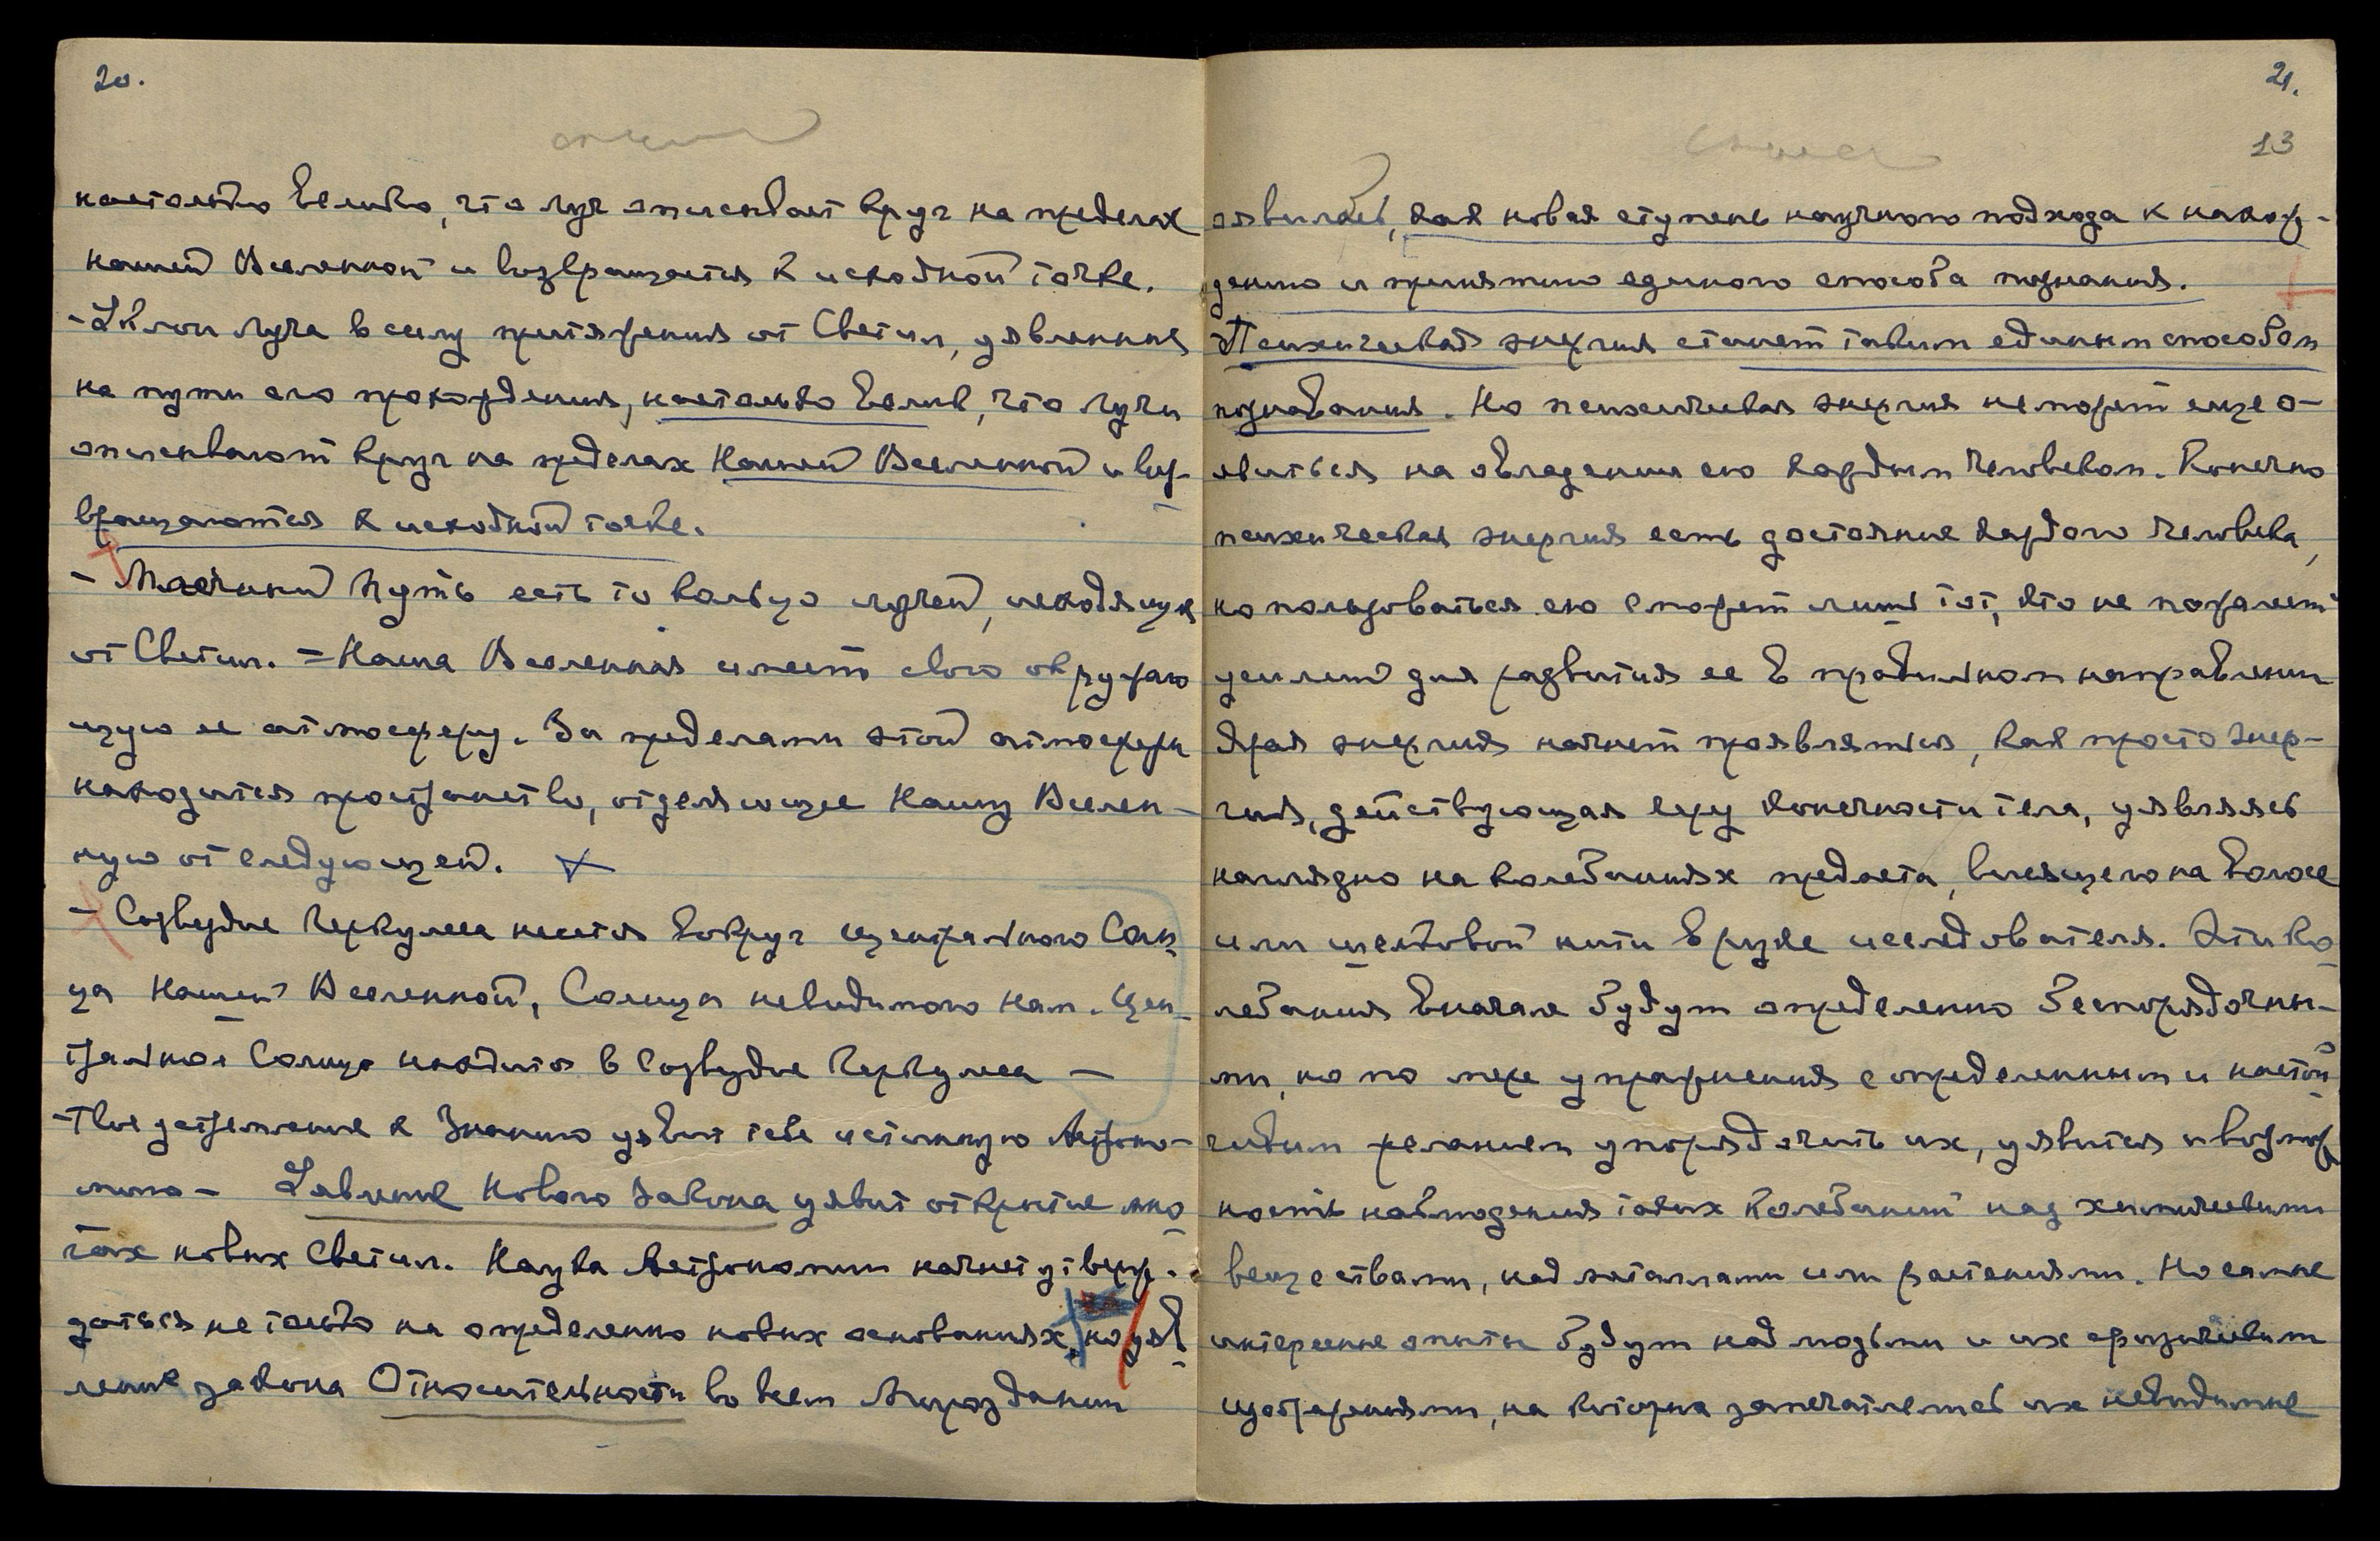 20.
настолько велико, что луч описывает круг на пределах
нашей Вселенной и возвращается к исходной точке.
- Уклон луча в силу притяжения от Светил, уявленных
на пути его прохождения, настолько велик, что лучи
описывают круг на пределах Нашей Вселенной и воз-
вращаются к исходной точке.
- Млечный Путь есть то кольцо лучей, исходящих
от Светил. = Наша Вселенная имеет свою окружаю
щую ее атмосферу. За пределами этой атмосферы
находится пространство, отделяющее Нашу Вселен-
ную от следующей.
- Созвездие Геркулеса несется вокруг центрального Солн
ца Нашей Вселенной, Солнца невидимого нам. Цен-
тральное Солнце находится в Созвездие Геркулеса —
- Твое устремление к Знанию уявит тебе истинную Астроно-
мию - Уявление Нового Закона уявит открытие мно
гих новых Светил. Наука Астрономии начнет утверж-
даться не только на определенно новых основаниях, но уяв
ление закона Относительности во всем Мироздании
21.
13
оявилась, как новая ступень научного подхода к нахож-
дению и принятию единого способа познания.
Психическая энергия станет таким единым способом
познавания. Но психическая энергия не может еще о-
явиться на овладении ею каждым человеком. Конечно
психическая энергия есть достояние каждого человека,
но пользоваться ею сможет лишь тот, кто не пожалеет
усилий для развития ее в правильном направлении
Ярая энергия начнет проявляться, как просто энер-
гия, действующая через конечности тела, уявляясь
наглядно на колебаниях предмета, висящего на волосе
или шелковой нити в руке исследователя. Эти ко-
лебания вначале будут определенно беспорядочны-
ми, но по мере упражнения с определенным и настой
чивым желанием упорядочить их, уявится и возмож
ность наблюдения таких колебаний над химическими
веществами, над металлами или растениями. Но самые
интересные опыты будут над людьми и их физическими
изображениями, на которых запечатлелись их невидимые